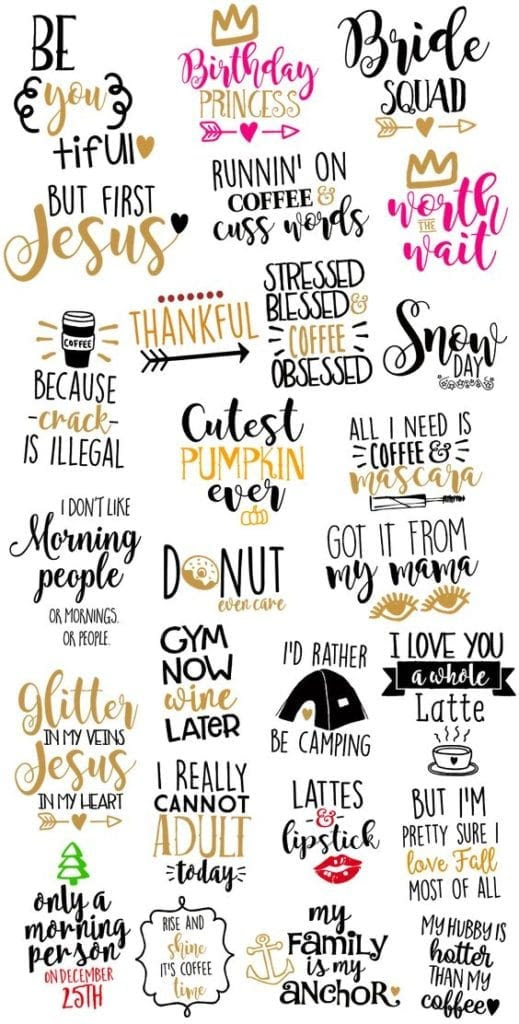 BE
you
tiful
Birthday
PRINCESS
Bride
SQUAD
BUT FIRST
Jesus
RUNNIN' ON
COFFEE &
cuss words
worth
THE
wait
COFFEE
BECAUSE
-crack-
IS ILLEGAL
THANKFUL
STRESSED
BLESSED &
COFFEE
OBSESSED
Snow
DAY
Cutest
PUMPKIN
ever
ALL I NEED IS
COFFEE &
mascara
I DON'T LIKE
Morning
people
OR MORNINGS.
OR PEOPLE.
DONUT
even care
GOT IT FROM
my mama
Glitter
IN MY VEINS
Jesus
IN MY HEART
GYM
NOW
wine
LATER
I'D RATHER
BE CAMPING
I LOVE YOU
a whole
Latte
I REALLY
CANNOT
ADULT
today
LATTES
&
lipstick
BUT I'M
PRETTY SURE I
love Fall
MOST OF ALL
only a
morning
person
ON DECEMBER
25TH
RISE AND
shine
IT'S COFFEE
time
my
FAMILY
is my
ANCHOR
MY HUBBY IS
hotter
THAN MY
coffee